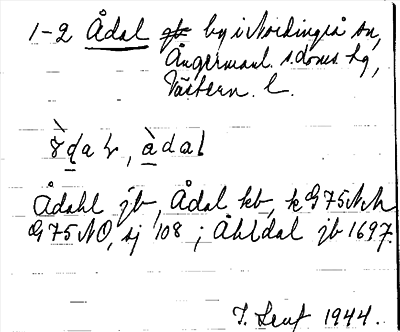 1-2 Ådal by i Nordingrå sn,
Ångermanl. s. doms hg,
Västern. l.
ådal
Ådahl jb, Ådal kb, k G75NM
G75NO, sj 108; Åhldal jb 1697.
1944.